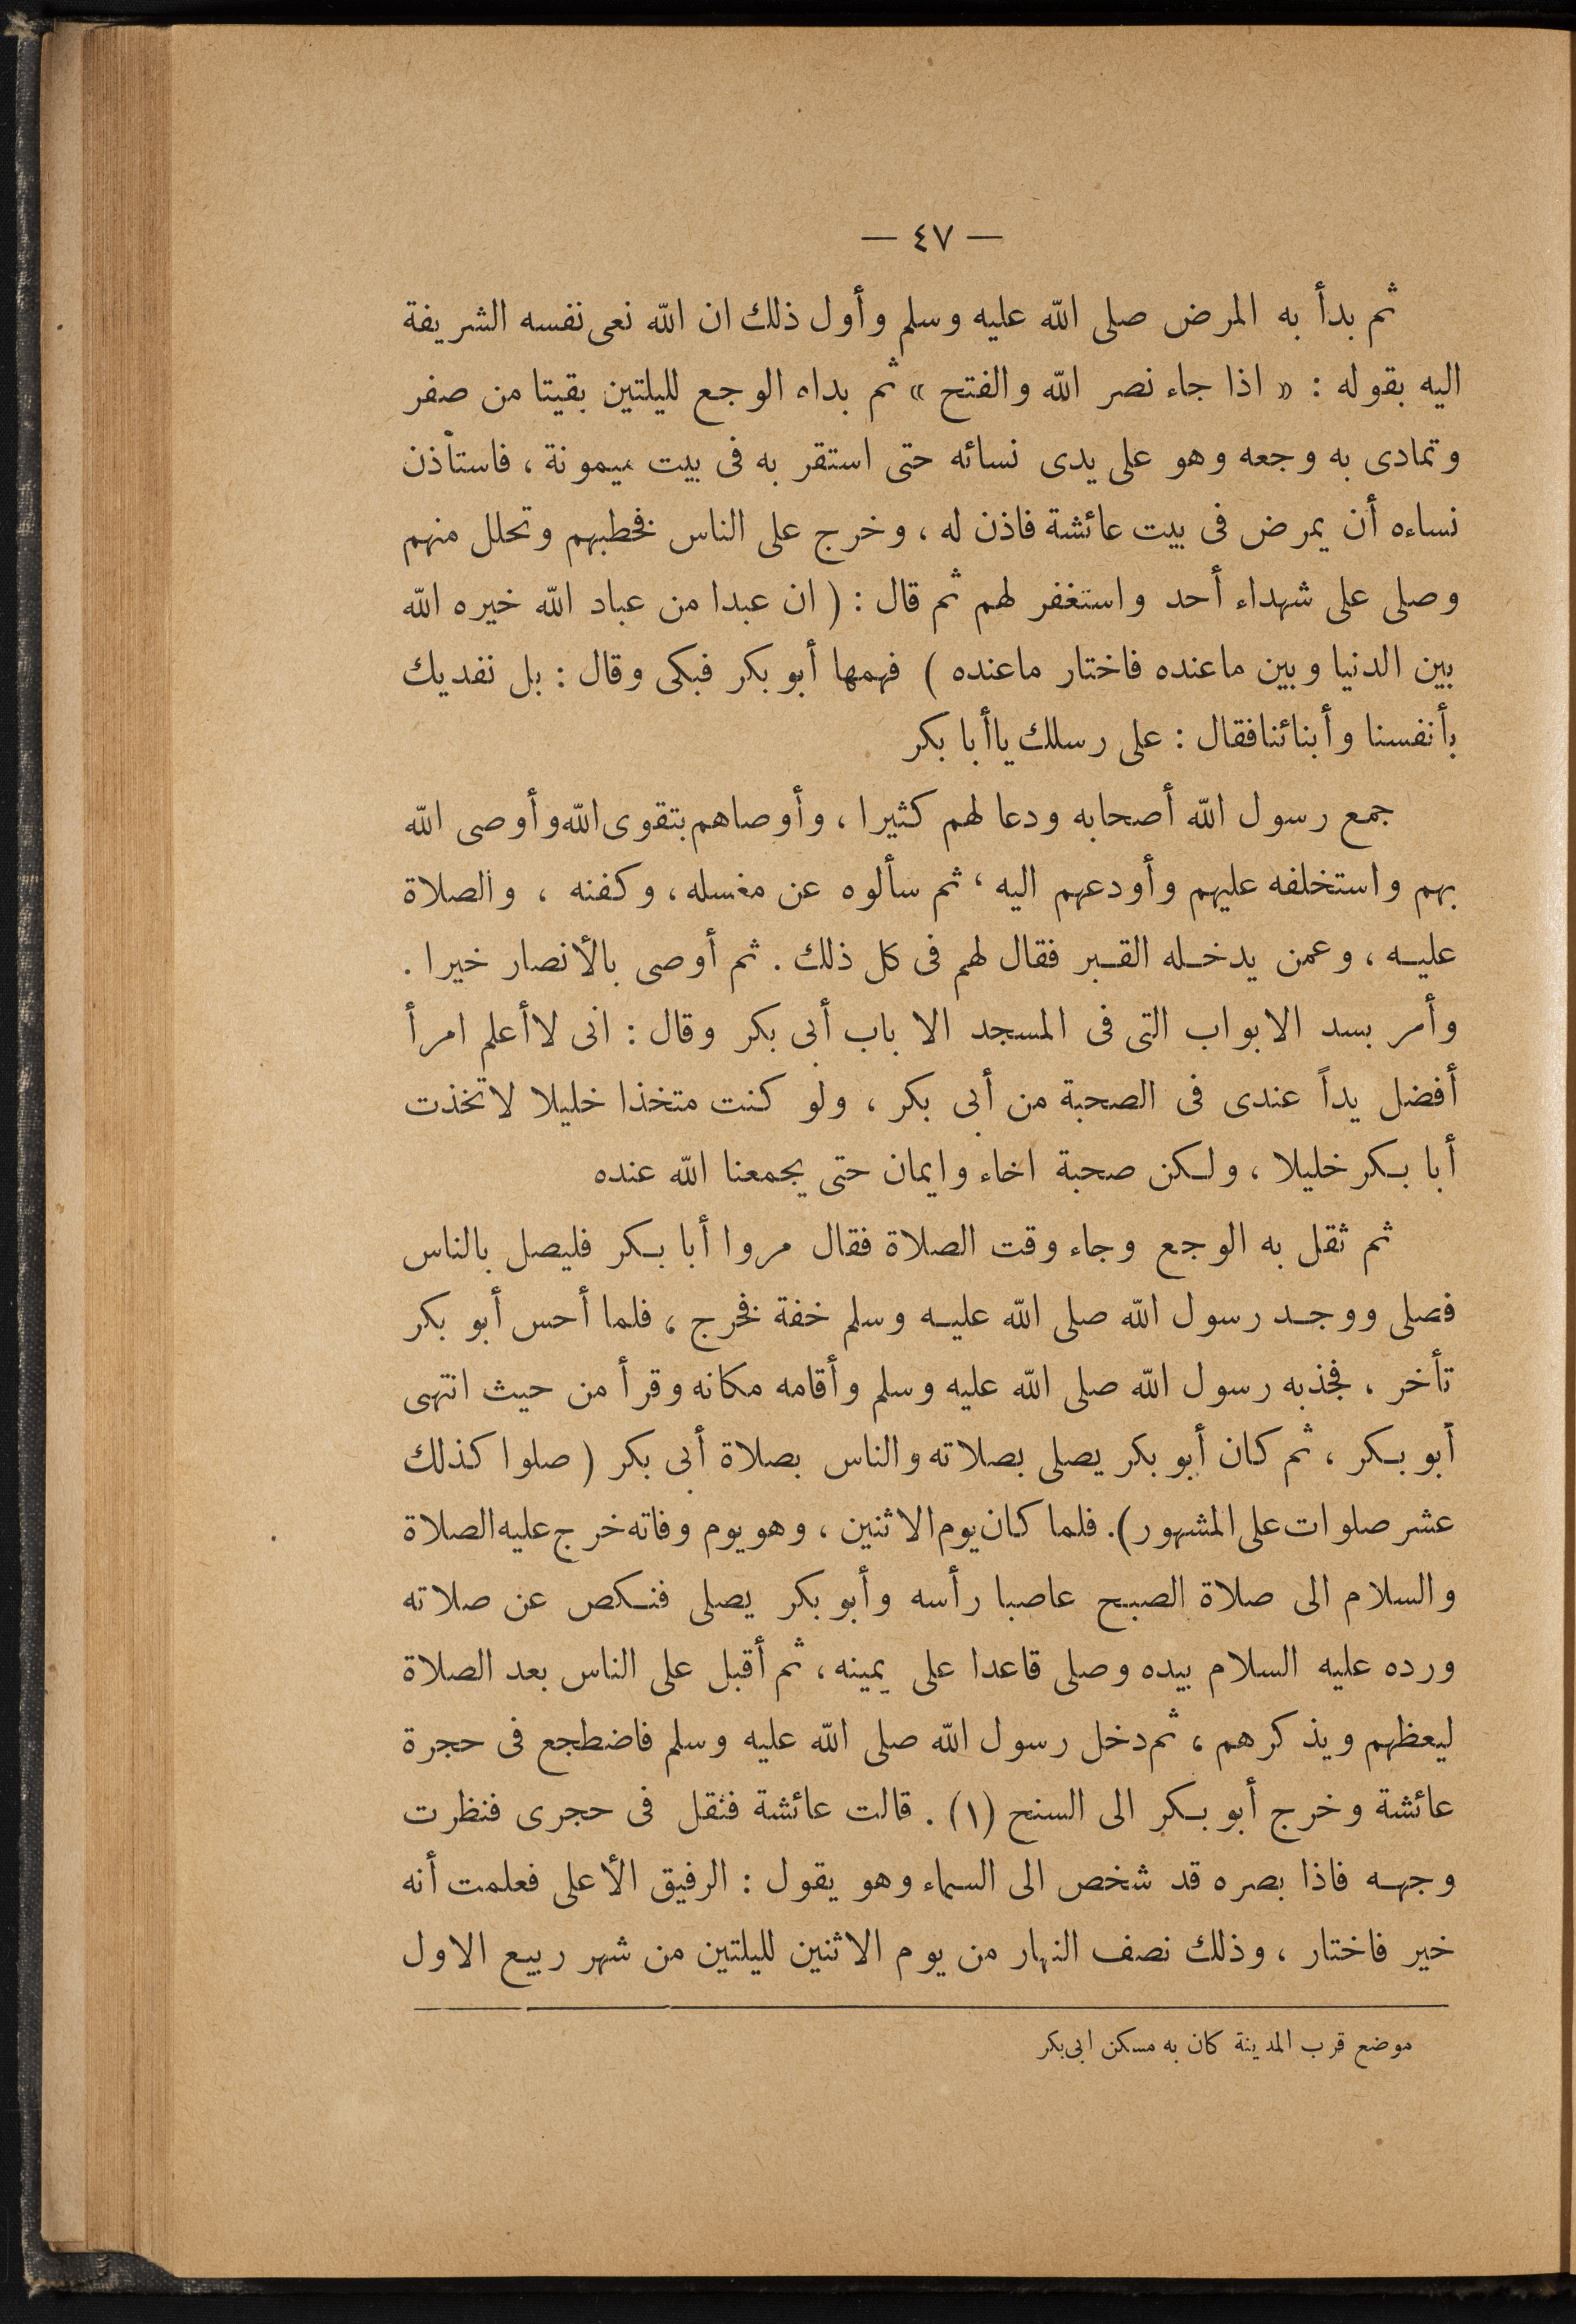 — ٤٧ —
ثم بدأ به المرض صلى الله عليه وسلم وأول ذلك ان الله نعى نفسه الشريفة
اليه بقوله : « اذا جاء نصر الله والفتح » ثم بداه الوجع لليلتين بقيتا من صفر
وتمادى به وجعه وهو على يدى نسائه حتى استقر به فى بيت ميمونة ، فاستأذن
نساءه أن يمرض فى بيت عائشة فاذن له ، وخرج على الناس فخطبهم وتحلل منهم
وصلى على شهداء أحد واستغفر لهم ثم قال : ( ان عبدا من عباد الله خيره الله
بين الدنيا وبين ماعنده فاختار ماعنده ) فهمها أبو بكر فبكى وقال : بل نفديك
بأنفسنا وأبنائنا فقال : على رسلك ياأبا بكر
جمع رسول الله أصحابه ودعا لهم كثيرا ، وأوصاهم بتقوى الله وأوصى الله
بهم واستخلفه عليهم وأودعهم اليه ، ثم سألوه عن مغسله ، وكفنه ، والصلاة
عليه ، وعمن يدخله القبر فقال لهم فى كل ذلك . ثم أوصى بالأنصار خيرا .
وأمر بسد الابواب التى فى المسجد الا باب أبى بكر وقال : انى لاأعلم امرأ
أفضل يداً عندى فى الصحبة من أبى بكر ، ولو كنت متخذا خليلا لاتخذت
أبا بكر خليلا ، ولكن صحبة اخاء وايمان حتى يجمعنا الله عنده
ثم ثقل به الوجع وجاء وقت الصلاة فقال مروا أبا بكر فليصل بالناس
فصلى ووجد رسول الله صلى الله عليه وسلم خفة فخرج ، فلما أحس أبو بكر
تأخر ، فجذبه رسول الله صلى الله عليه وسلم وأقامه مكانه وقرأ من حيث انتهى
أبو بكر ، ثم كان أبو بكر يصلى بصلاته والناس بصلاة أبى بكر ( صلوا كذلك
عشر صلوات على المشهور ) . فلما كان يوم الاثنين ، وهو يوم وفاته خرج عليه الصلاة
والسلام الى صلاة الصبح عاصبا رأسه وأبو بكر يصلى فنكص عن صلاته
ورده عليه السلام بيده وصلى قاعدا على يمينه ، ثم أقبل على الناس بعد الصلاة
ليعظهم ويذكرهم ، ثم دخل رسول الله صلى الله عليه وسلم فاضطجع فى حجرة
عائشة وخرج أبو بكر الى السنح (١) . قالت عائشة فثقل فى حجرى فنظرت
وجهه فاذا بصره قد شخص الى السماء وهو يقول : الرفيق الأعلى فعلمت أنه
خير فاختار ، وذلك نصف النهار من يوم الاثنين لليلتين من شهر ربيع الاول
موضع قرب المدينة كان به مسكن ابى بكر